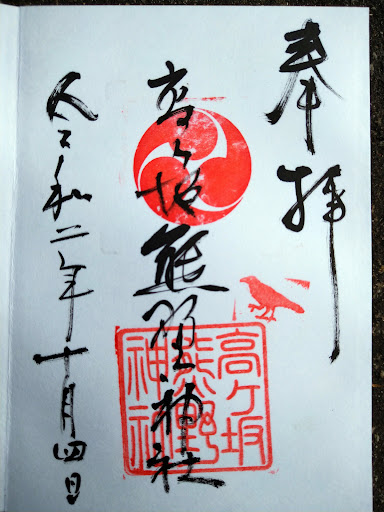 奉拝
高ヶ坂熊野神社
高ヶ坂
熊野
神社
令和二年十月四日